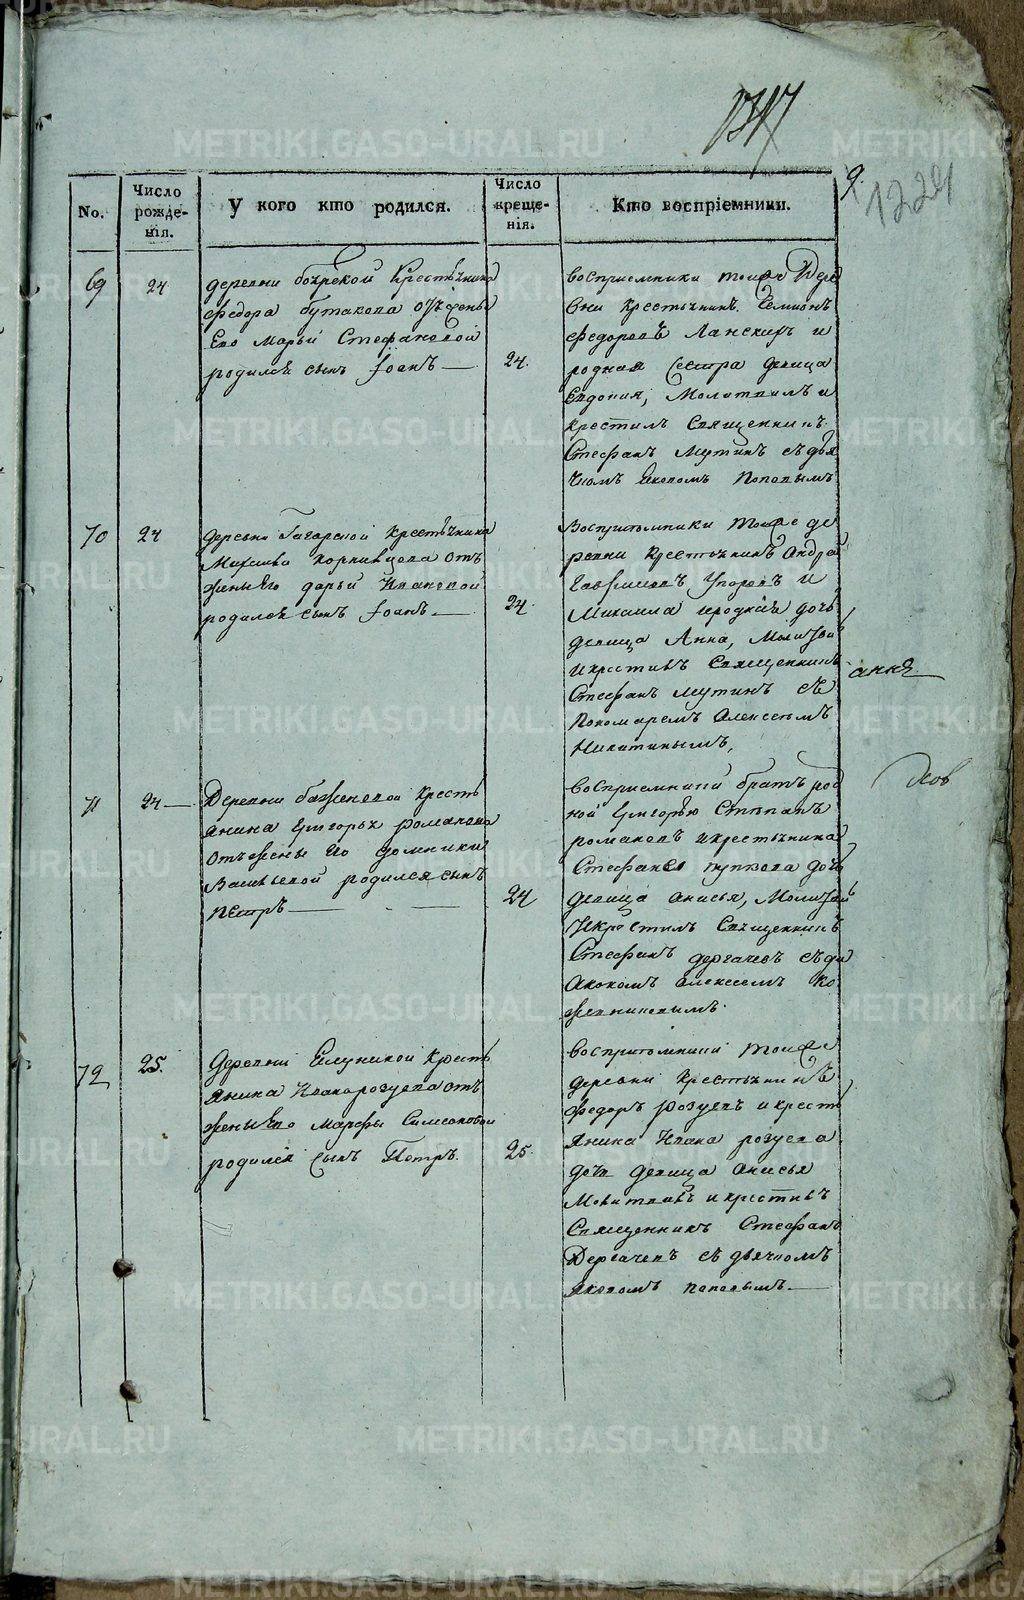 1317
9.
1229
No.
Число рожде-нія.
У кого кто родился.
Число креще-нія.
Кто воспріемники.
69
24
деревни боярской Крестьянина
федора бутакова отъ жены
Его Марьи Стефановой
родился сынъ Іоанъ
24.
восприемники тойже Дере
вни крестьянинъ Симионъ
федоровъ Ланскихъ и
родная сестра девица
Евдокия, Молитвилъ и
крестилъ Священникъ
Стефанъ Мутинъ съ дья
чкомъ Яковомъ Поповымъ
70
24
деревни Гагарской крестьянина
Михаила отъ
жены Его дарьи Ивановой
родился сынъ Іоанъ
24.
Восприемники тойже де
ревни крестьянинъ Андрей
Гавриловъ Упоровъ и
Михаила дочь
девица Анна, Молитвилъ
и крестилъ Священникъ
Стефанъ Мутинъ съ
Пономаремъ Алексеемъ
Никитинымъ,
71
24
Деревни баженовой Кресть
янина Григорья романова
отъ жены Его домники
Васильевой родился сынъ
Петръ
24
восприемники братъ род
ной Григорью Степанъ
романовъ и крестьянина
Стефана пупкова дочь
девица анисья, Молитвилъ
И крестилъ Священникъ
Стефанъ дергачевъ съ ди
акономъ алексеемъ ко
жевниковымъ
72
25.
Деревни Елуниной Кресть
янина Ивана розуева отъ
жены Его Марфы Симеоновой
родился сынъ Петръ.
25.
восприемники тойже
деревни крестьянинъ
федоръ розуевъ и кресть
янина Ивана розуева
дочь девица анисья
Молитвилъ и крестилъ
Священникъ Стефанъ
Дергачевъ съ дьячкомъ
яковомъ поповымъ